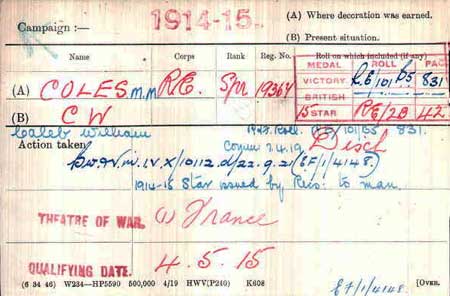 1914-15.
(A) Where decoration was earned.
Campaign :—
(B) Present situation.
Name Corps Rank Reg. No. Roll on which included (if any)
MEDAL ROLL PAGE
(A) COLES. M.M R.E. Spr 19364 VICTORY RE/101 B5 831
BRITISH
(B) C W 15 STAR RE/2B 42
Caleb William Roll. 101/B5 831.
Action taken 2.4.19 Disch
B.W.&V. IV.X/10112.d/22.9.21 (EF/1/4148.)
1914-15 Star issued by Recs: to man.
THEATRE OF WAR. W France
QUALIFYING DATE. 4.5.15
(6 34 46) W234—HP5590 500,000 4/19 HWV(P240) K608 [OVER.
EF/1/4148.